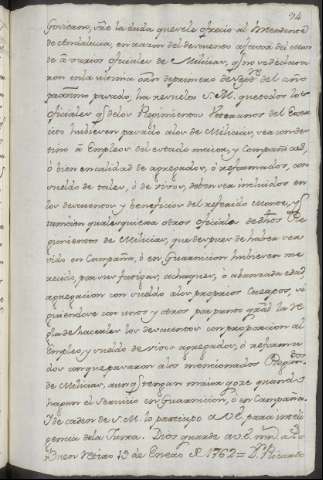 94
Govierno, sre la duda que se le ofrecio al Yntendente
de Andalucia, en razon del descuento a favor del
de a varios oficiales de Milicias, q no se declara
ron en la ultima orn de primero de del año
pasado, ha resuelto S. M. que todos los
oficiales q de los Regimientos Veteranos del Exer
cito hubiesen pasado a los de Milicias, sea con des
tino à Empleos del estado maior, y Compañias,
ò bien en calidad de agregados, ò reformados, con
sueldo de tales, ò de vivos, deben ser incluidos en
los descuentos y beneficios del referido Monte, y
tambien qualesquiera otros oficiales de dhos Re
gimientos de Milicias, que despues de haber ser
vido en Campaña, ò en Guarnicion hubiesen me
recido, por sus fatigas, achaques, ò abanzada edad
agregacion con sueldo a los propios Cuerpos, si
guiendose con unos y otros por punto gral la re
gla de hacerles los descuentos con proporcion al
Empleo y sueldo de vivos agregados, ò reforma
dos con que pasaron a los mencionados Regim.tos
de Milicias, aunq tengan maior goze quando
hagan el servicio en Guarnicion, ò en Campaña.
Y de orden de S. M. lo participo a para inteli
gencia de la Junta. Dios guarde a m.s a.s
Buen Retiro 19 de Enero de 1762 = Dn Ricardo